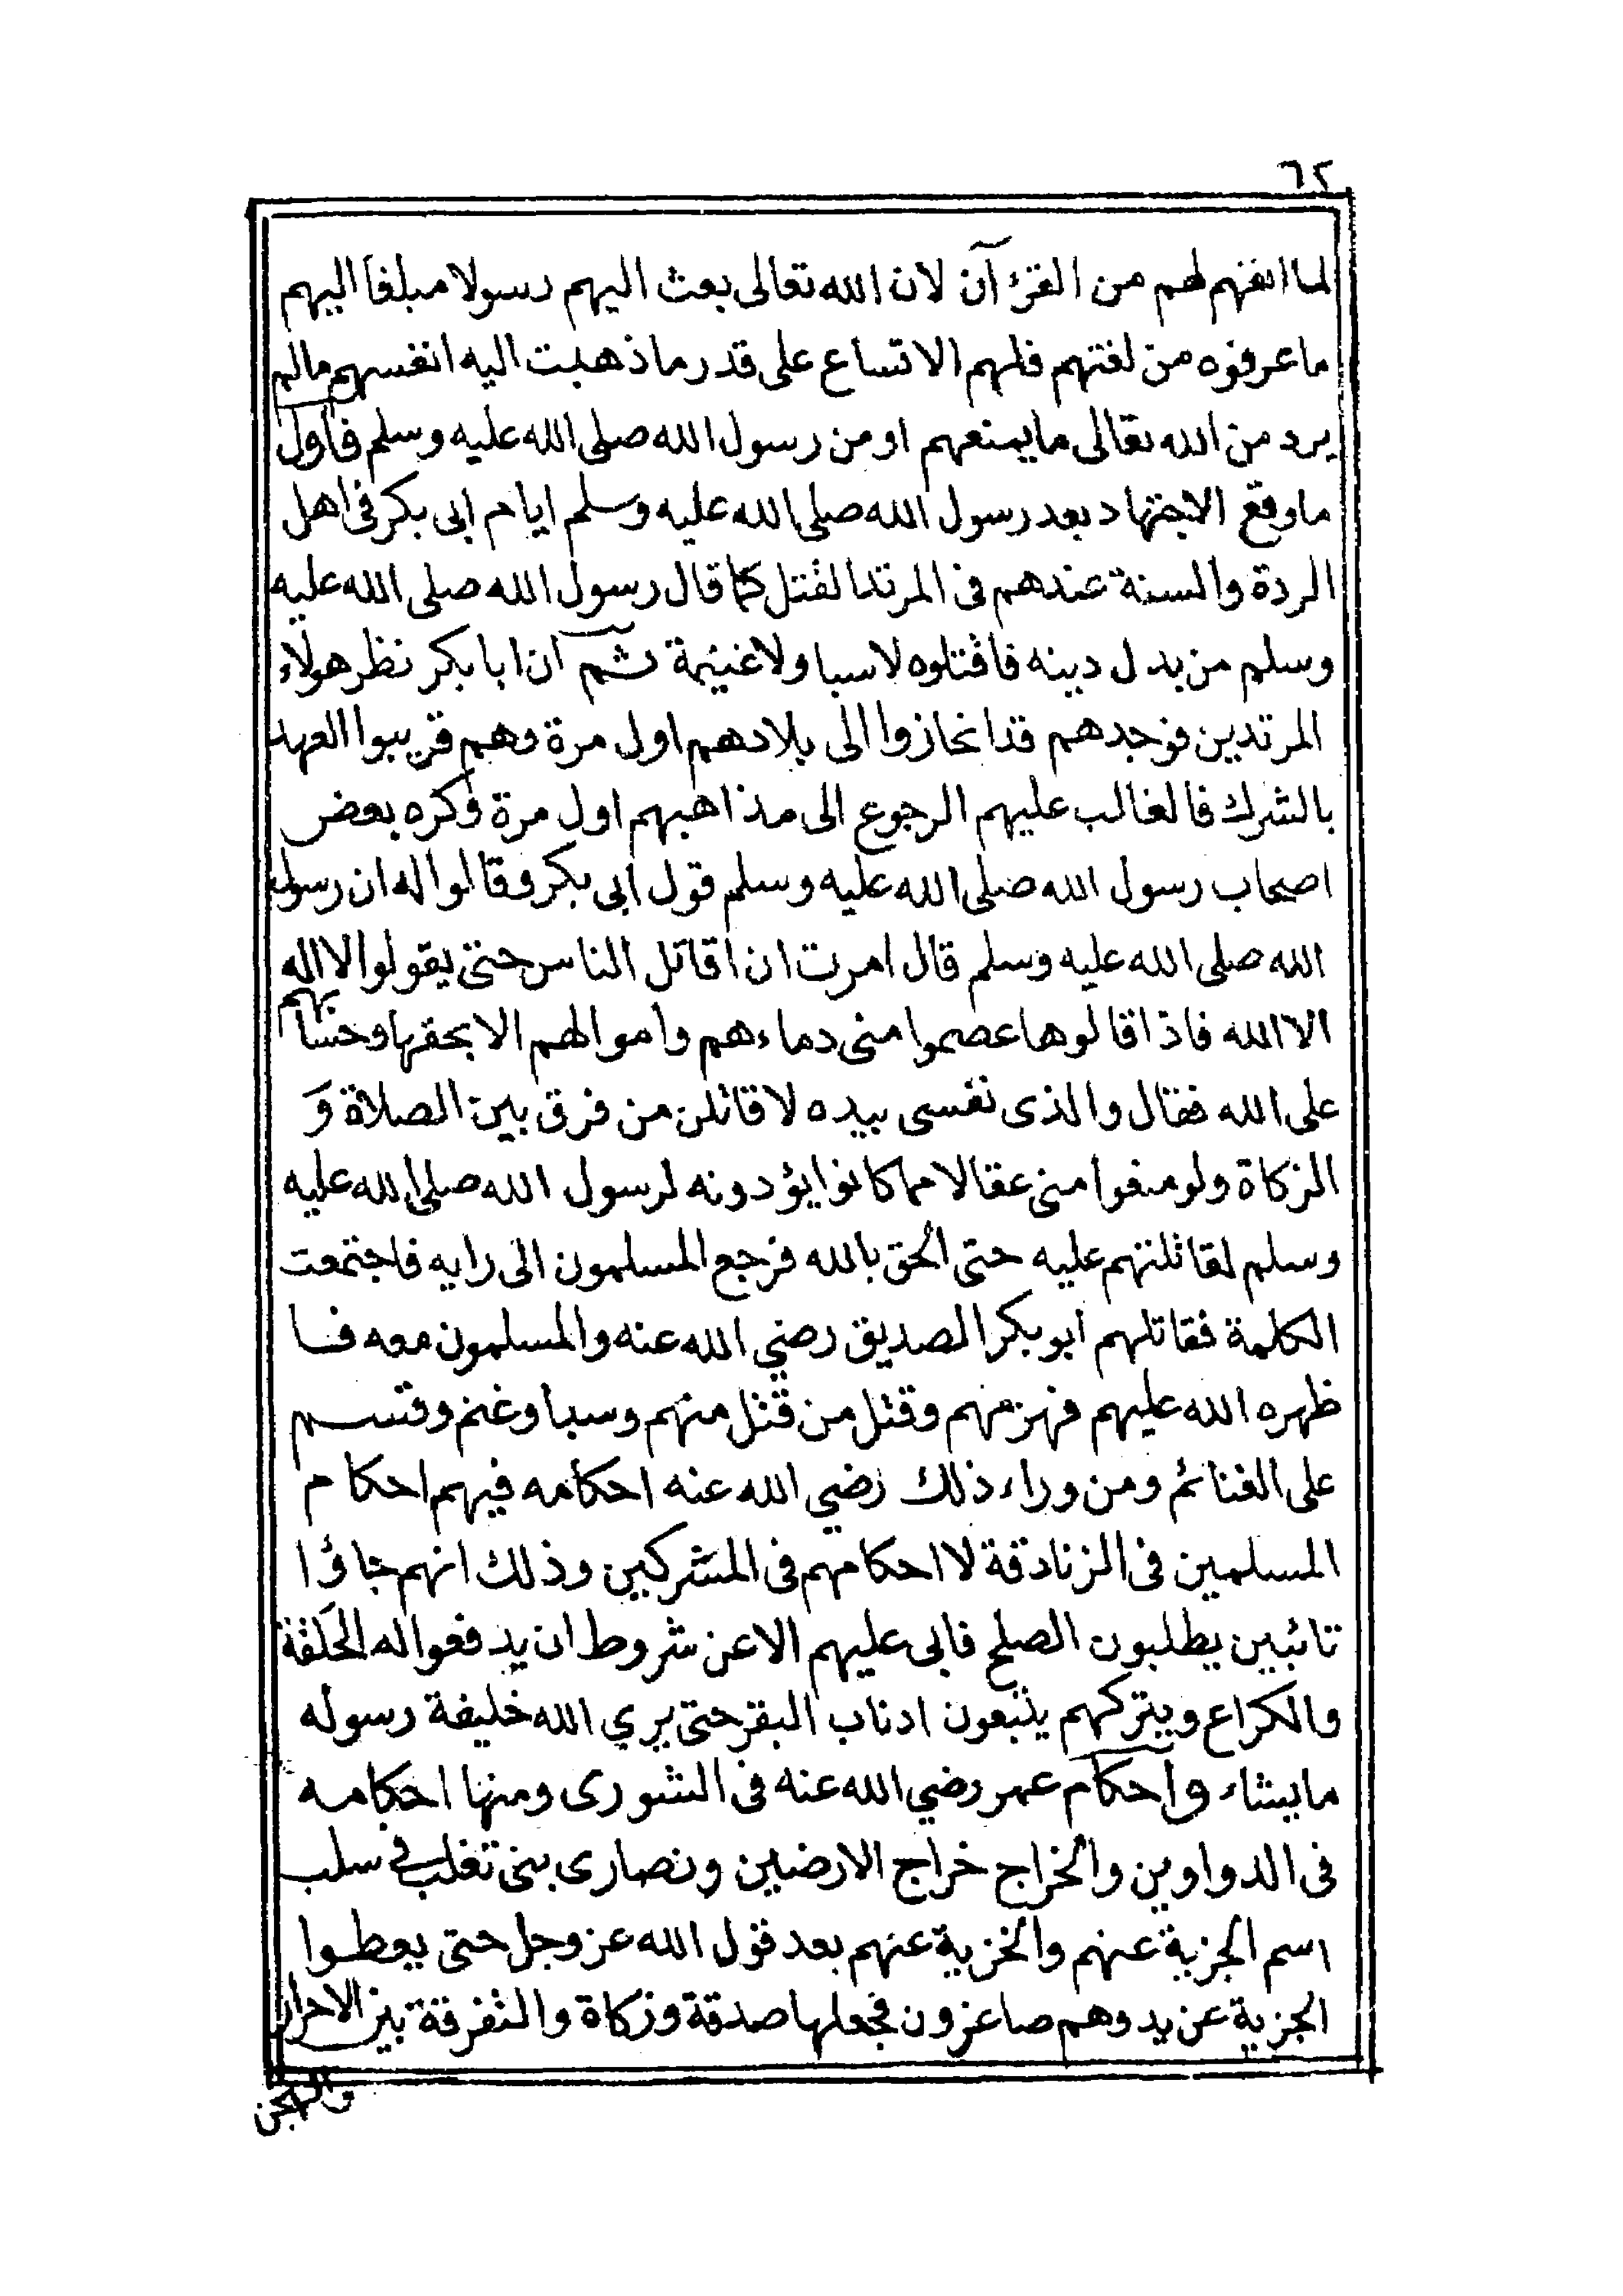 ٦٢
لما انفهم لهم من القرءآن لان الله تعالى بعث اليهم رسولا مبلغا اليهم
ما عرفوه من لغتهم فلهم الاتساع على قدر ما ذهبت اليه انفسهم مالم
يرد من الله تعالى ما يمنعهم او من رسول الله صلى الله عليه وسلم فاول
ما وقع الاجتهاد بعد رسول الله صلى الله عليه وسلم ايام ابى بكر فى اهل
الردة والسنة عندهم فى المرتد القتل كما قال رسول الله صلى الله عليه
وسلم من بدل دينه فاقتلوه لا سبا ولا غنيمة ثم ان ابا بكر نظر هولاء
المرتدين فوجدهم قد انحازوا الى بلادهم اول مرة وهم قريبوا العهد
بالشرك فالغالب عليهم الرجوع الى مذاهبهم اول مرة وكره بعض
اصحاب رسول الله صلى الله عليه وسلم قول ابى بكر وقالوا له ان رسول
الله صلى الله عليه وسلم قال امرت ان اقاتل الناس حتى يقولوا لا اله
الا الله فاذا قالوها عصموا منى دماءهم واموالهم الا بحقها وحسابهم
على الله فقال والذى نفسى بيده لا قاتلن من فرق بين الصلاة وَ
الزكاة ولو منعوا منى عقالا مما كانوا يؤدونه لرسول الله صلى الله عليه
وسلم لقاتلتهم عليه حتى الحق بالله فرجع المسلمون الى رايه فاجتمعت
الكلمة فقاتلهم ابو بكر الصديق رضي الله عنه والمسلمون معه فا
ظهره الله عليهم فهزمهم وقتل من قتل منهم وسبا وغنم وقسم
على الغنائم ومن وراء ذلك رضي الله عنه احكامه فيهم احكام
المسلمين فى الزنادقة لا احكامهم فى المشركين وذلك انهم جاؤا
تائبين يطلبون الصلح فابى عليهم الا عن شروط ان يدفعوا له الحَلقة
والكراع ويتركهم يتبعون ادناب البقر حتى يري الله خليفة رسوله
ما يشاء واحكام عمر رضي الله عنه فى الشورى ومنها احكامه
فى الدواوين والخراج خراج الارضين ونصارى بنى تغلب في سلب
اسم الجزية عنهم والخزية عنهم بعد قول الله عز وجل حتى يعطوا
الجزية عن يد وهم صاغرون فجعلها صدقة وزكاة والتفرقة بين الاحرار
والهجن